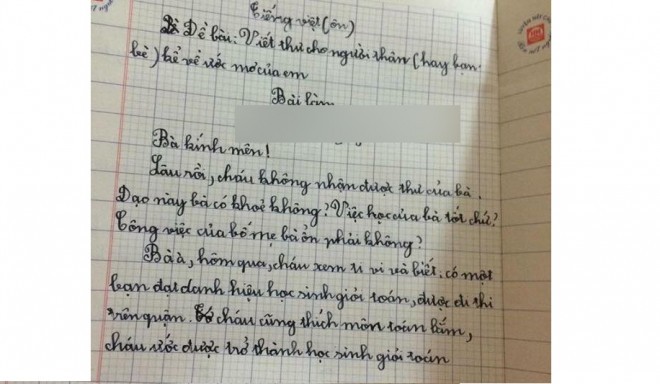 Tiếng việt (ôn)
Đề bài: Viết thư cho người thân (hay bạn
bè) kể về ước mơ của em
Bài làm
Bà kính mên!
Lâu rồi, cháu không nhận được thư của bà.
Dạo này bà có khoẻ không? Việc học của bà tốt chứ?
Công việc của bố mẹ bà ổn phải không?
Bà à, hôm qua, cháu xem ti vi và biết. có một
bạn đạt danh hiệu học sinh giỏi toán, được đi thi
trên quận. cháu cũng thích môn toán lắm,
cháu ước được trở thành học sinh giỏi toán